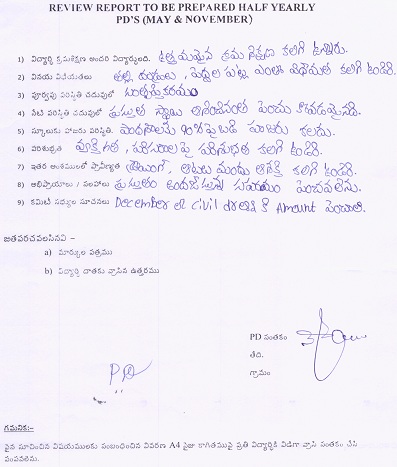 REVIEW REPORT TO BE PREPARED HALF YEARLY
PD'S (MAY & NOVEMBER)
1) విద్యార్థి క్రమశిక్షణ అందరి విద్యార్థులది. ఉత్తమమైన క్రమ శిక్షణ కలిగి ఉన్నారు.
2) వినయ విధేయతలు తల్లి దండ్రులు, పెద్దల పట్ల ఎంతో విధేయత కలిగి ఉండెరి.
3) పూర్వపు పరిస్థితి చదువులో
4) నేటి పరిస్థితి చదువులో ప్రస్తుత స్థాయి ఆశించినంత పెంచు
5) స్కూలుకు హాజరు పరిస్థితి. 90% పైబడి హాజరు కలదు.
6) పరిశుభ్రత వ్యక్తిగత, పరిసరాల పై పరిశుభ్రత కలిగి ఉండెరి.
7) ఇతర అంశములలో ప్రావీణ్యత డ్రాయింగ్, ఆటలు మందు ఆసక్తి కలిగి ఉండెరి.
8) అభిప్రాయాలు / సలహాలు ప్రస్తుతం సహాయం పెంచవలెను.
9) కమిటీ సభ్యుల సూచనలు December లో civil dress కి Amount పెంచాలి.
జతపరచవలసినవి –
a) మార్కుల పత్రము
b) విద్యార్థి దాతకు వ్రాసిన ఉత్తరము
PD సంతకం
తేది.
గ్రామం
గమనిక:-
పైన సూచించిన విషయములకు సంబంధించిన వివరణ A4 సైజు కాగితముపై ప్రతి విద్యార్థికి విడిగా వ్రాసి సంతకం చేసి
పంపవలెను.